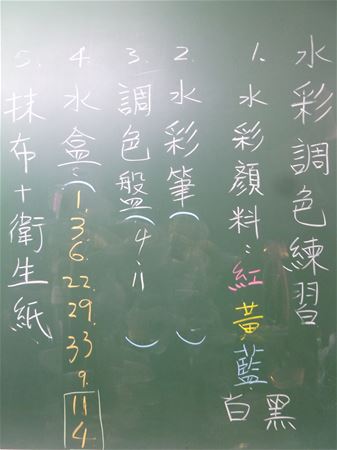 水彩調色練習
1. 水彩顏料：紅黃藍
白黑
2. 水彩筆（ ）
3. 調色盤（4.11 ）
4. 水盒：（1. 3. 6. 22. 29. 33 9. 11 4
5. 抹布+衛生紙